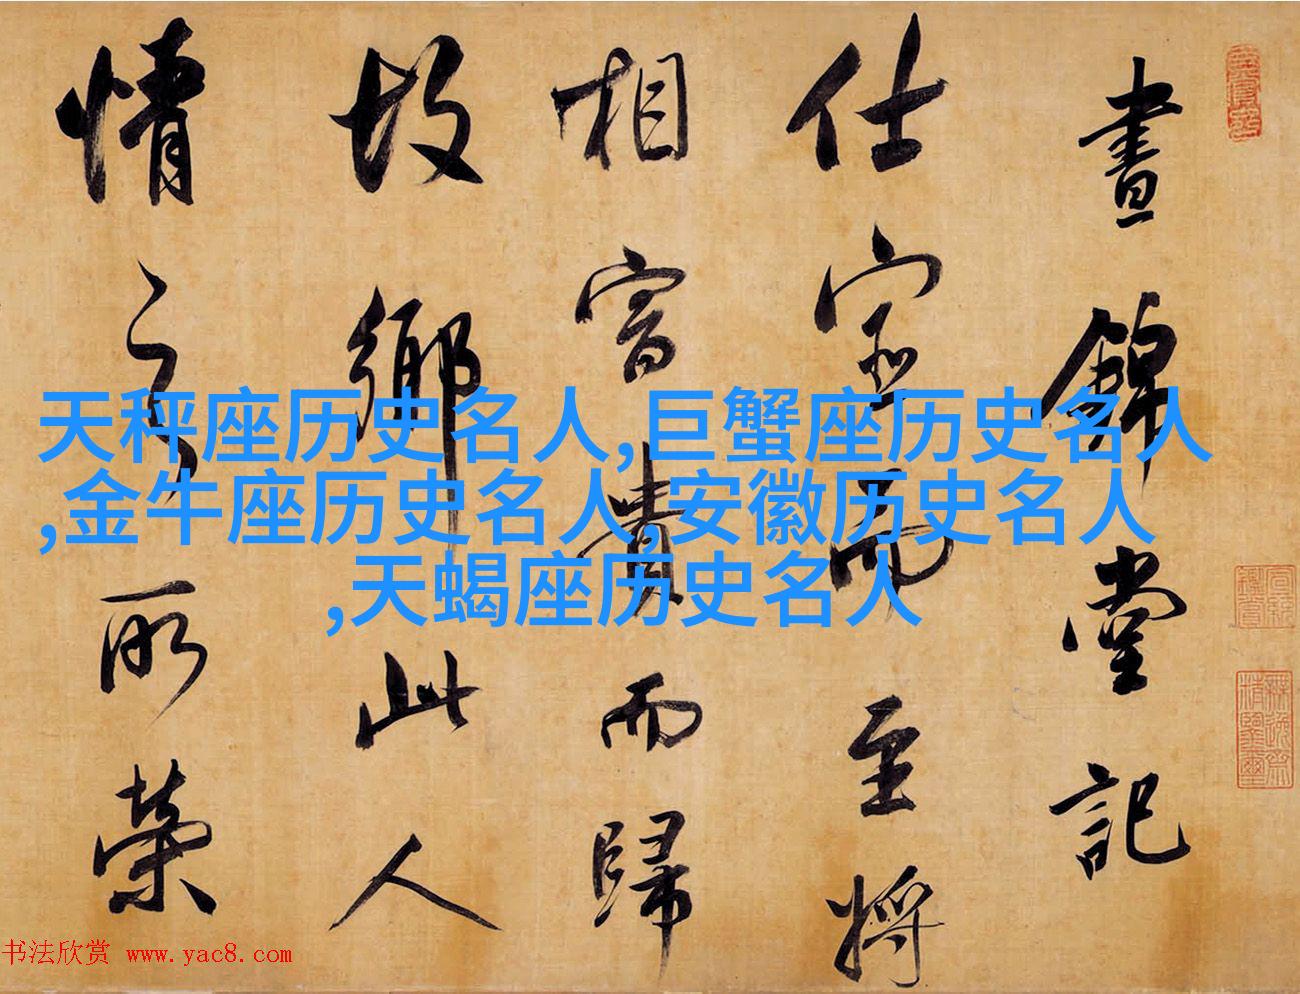 晝錦堂記
仕宦而至將
相富貴而歸
故鄉此人
情之所榮
天秤座历史名人,巨蟹座历史名人
,金牛座历史名人,安徽历史名人
,天蝎座历史名人
书法欣赏 www.yac8.com